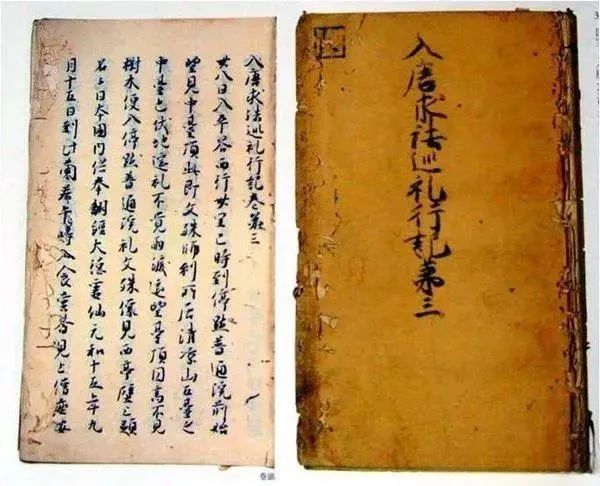 入唐求法巡礼行記第三
入唐求法巡礼行記巻第三
廿八日入平谷西行卅里巳時到停點普通院前始
望見中臺頂此即文殊師利所居清涼山五臺之
中臺也伏地遙礼不覚雨淚遠望臺頂圓高不見
樹木便入停點普通院礼文殊像見西亭壁上題
名云日本國内供奉翻經大德靈仙元和十五年九
月十五日到此蘭若齋時入食堂齋見上僧座安
巻頭